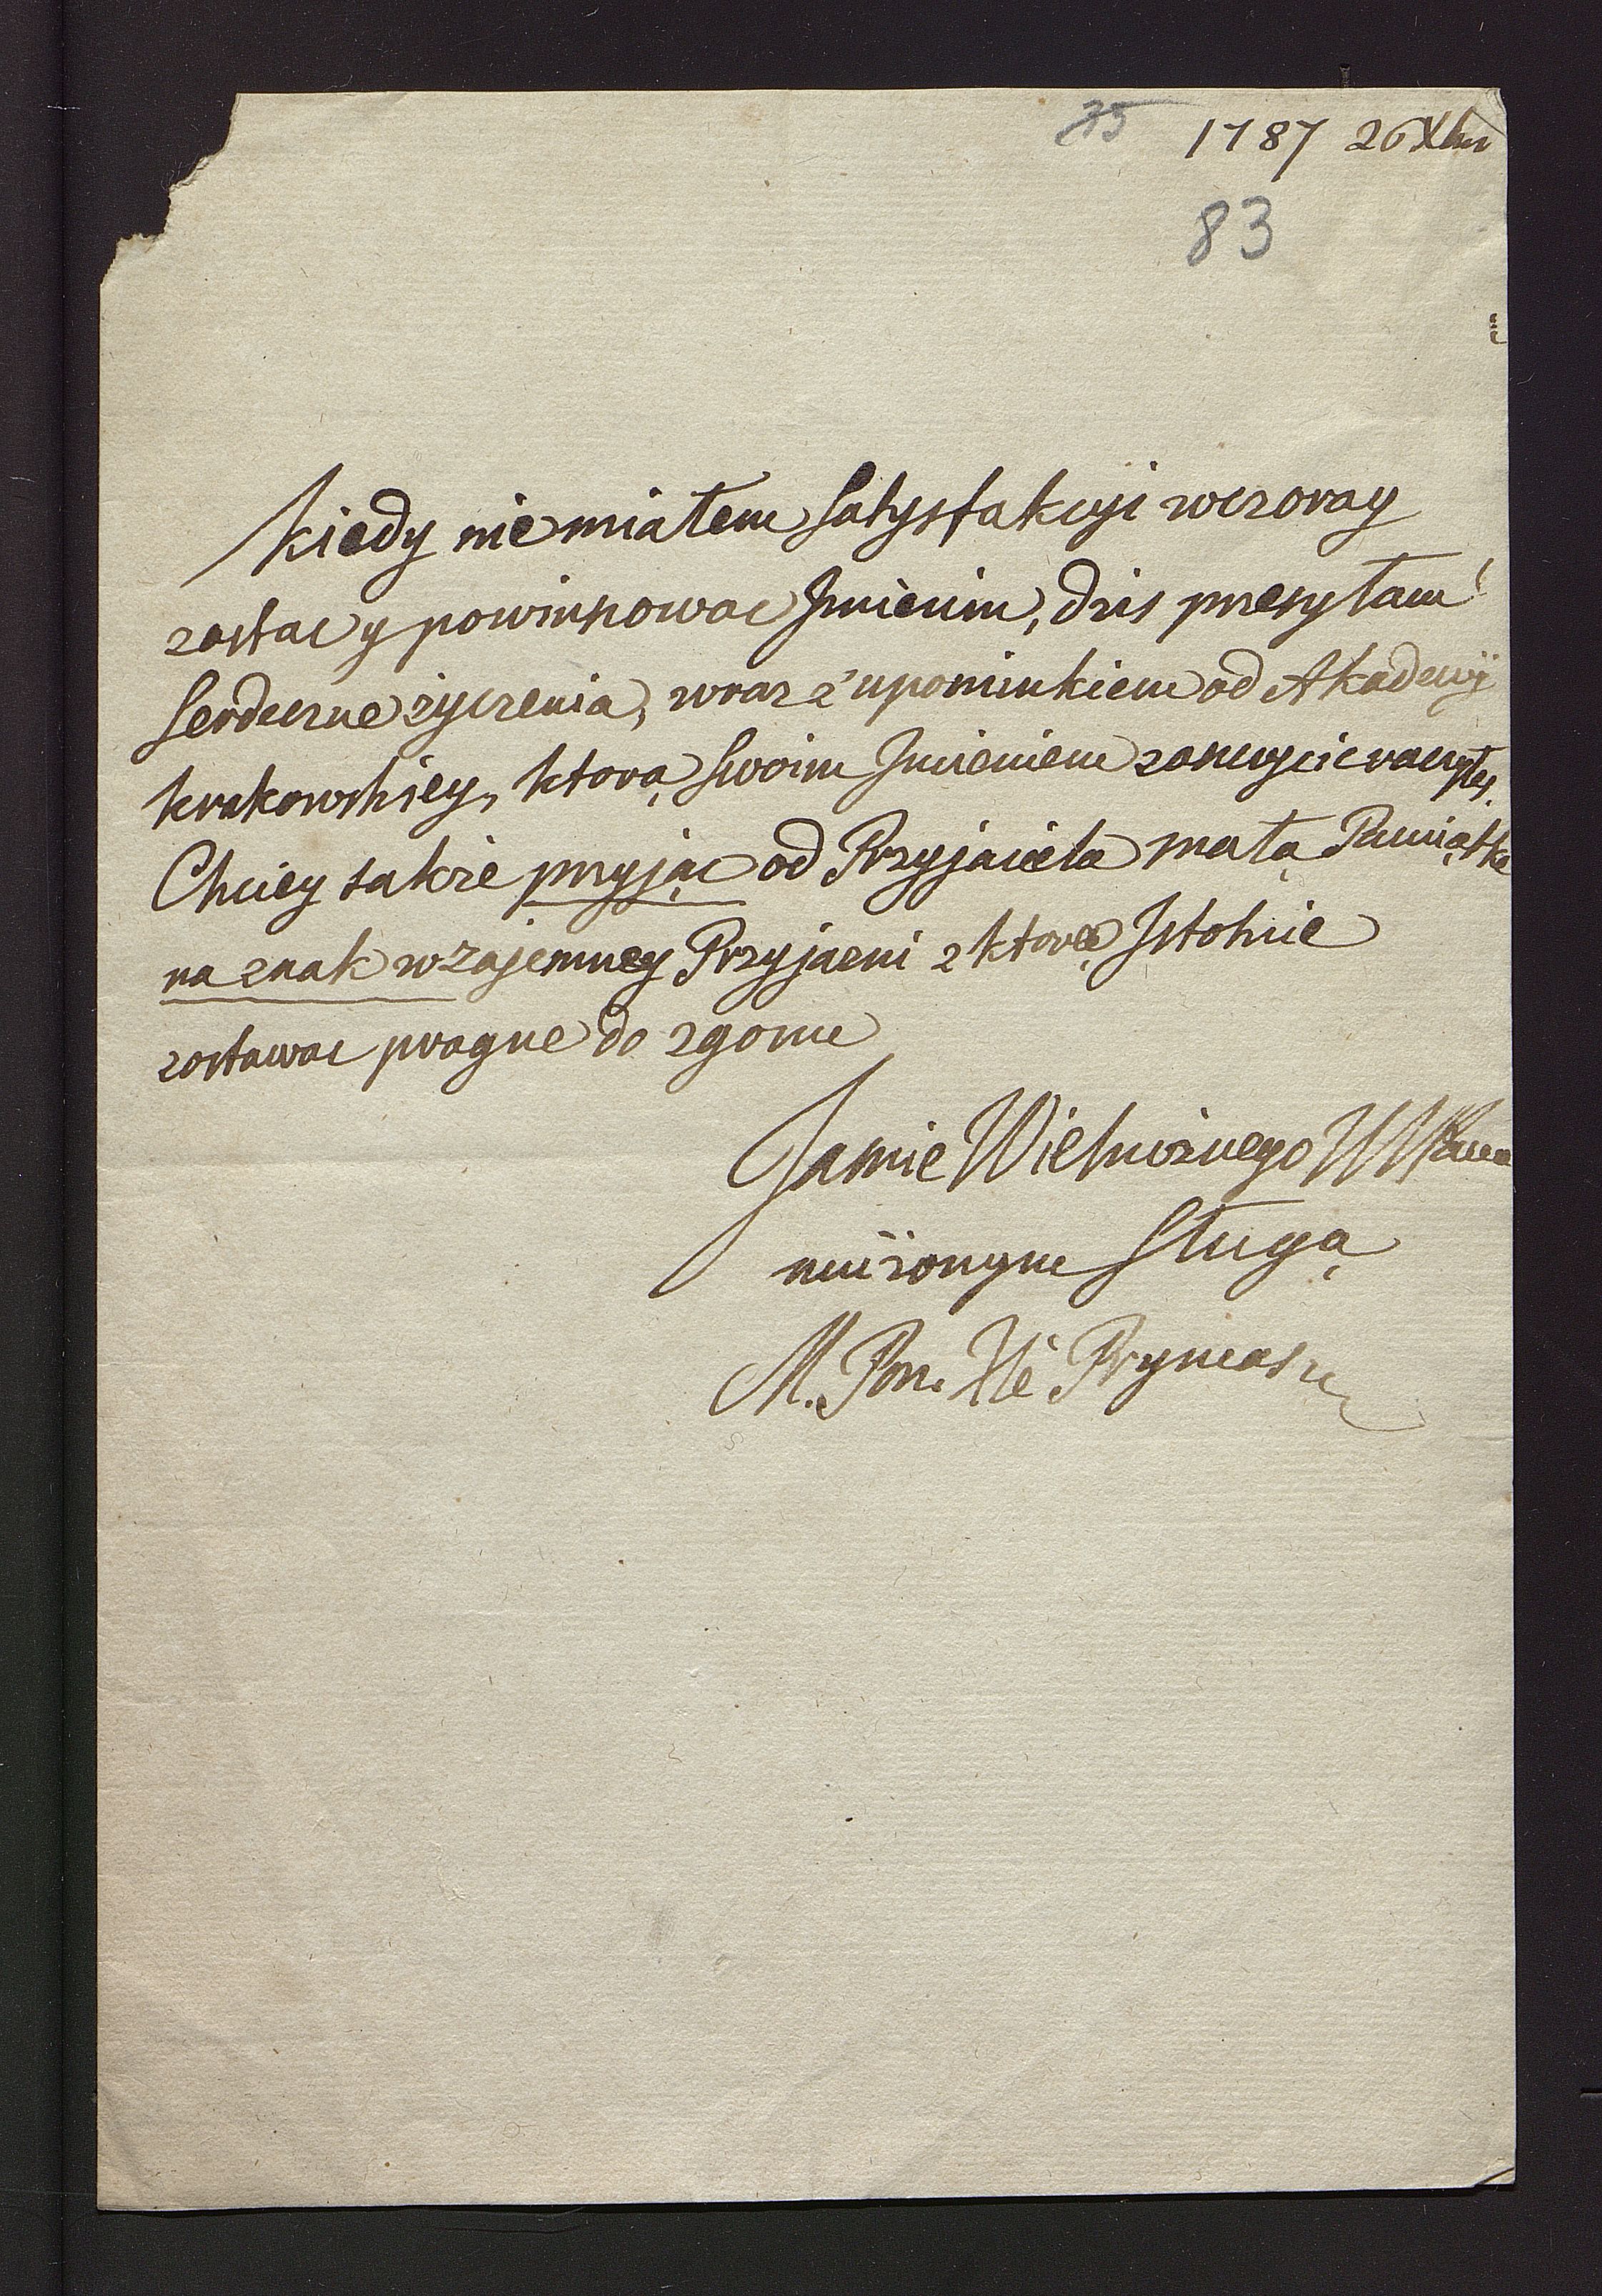 75 1787 26 Xbr
83
kiedy nie miałem satysfakcyi wczoray
zastac y powinszowac Jmienin, dzis przesyłam
serdeczne życzenia, wraz z upominkiem od Akademÿi
krakowskiey, ktorą swoim Jmieniem
Chciey takze przyjąc od Przyjaciela małą Pamiątke
na znak wzajemney Przyjazni z ktorą Jstotnie
zostawac pragne do zgonu
Jasnie Wielmożnego WWPana
uniżonym sługą
M. Pon. Xże Prymas